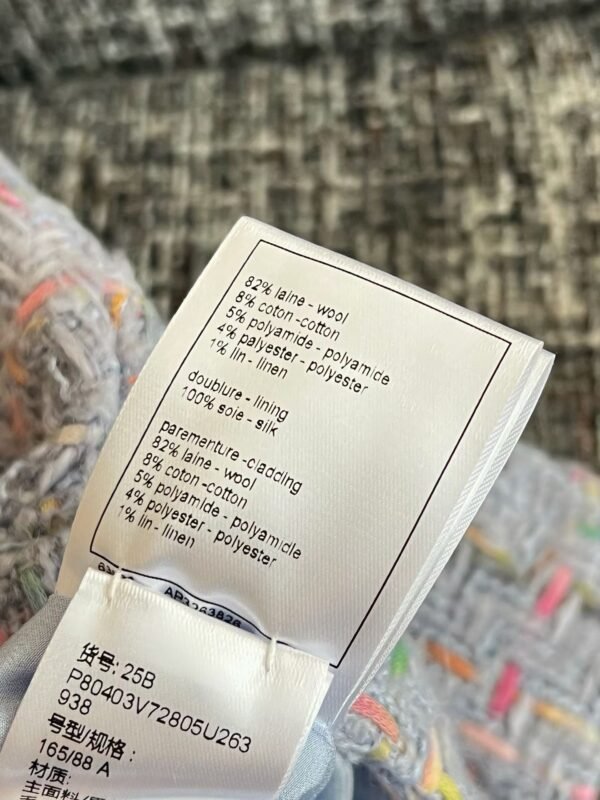 82% laine - wool
8% coton -cotton
5% polyamide - polyamide
4% palyester - polyester
1% lin - linen
doublure - lining
100% soie - silk
parementure -cladding
82% laine - wool
8% coton -cotton
5% polyamide - polyamide
4% polyester - polyester
1% lin - linen
货号: 25B
P80403V72805U263
938
号型/规格:
165/88 A
材质: